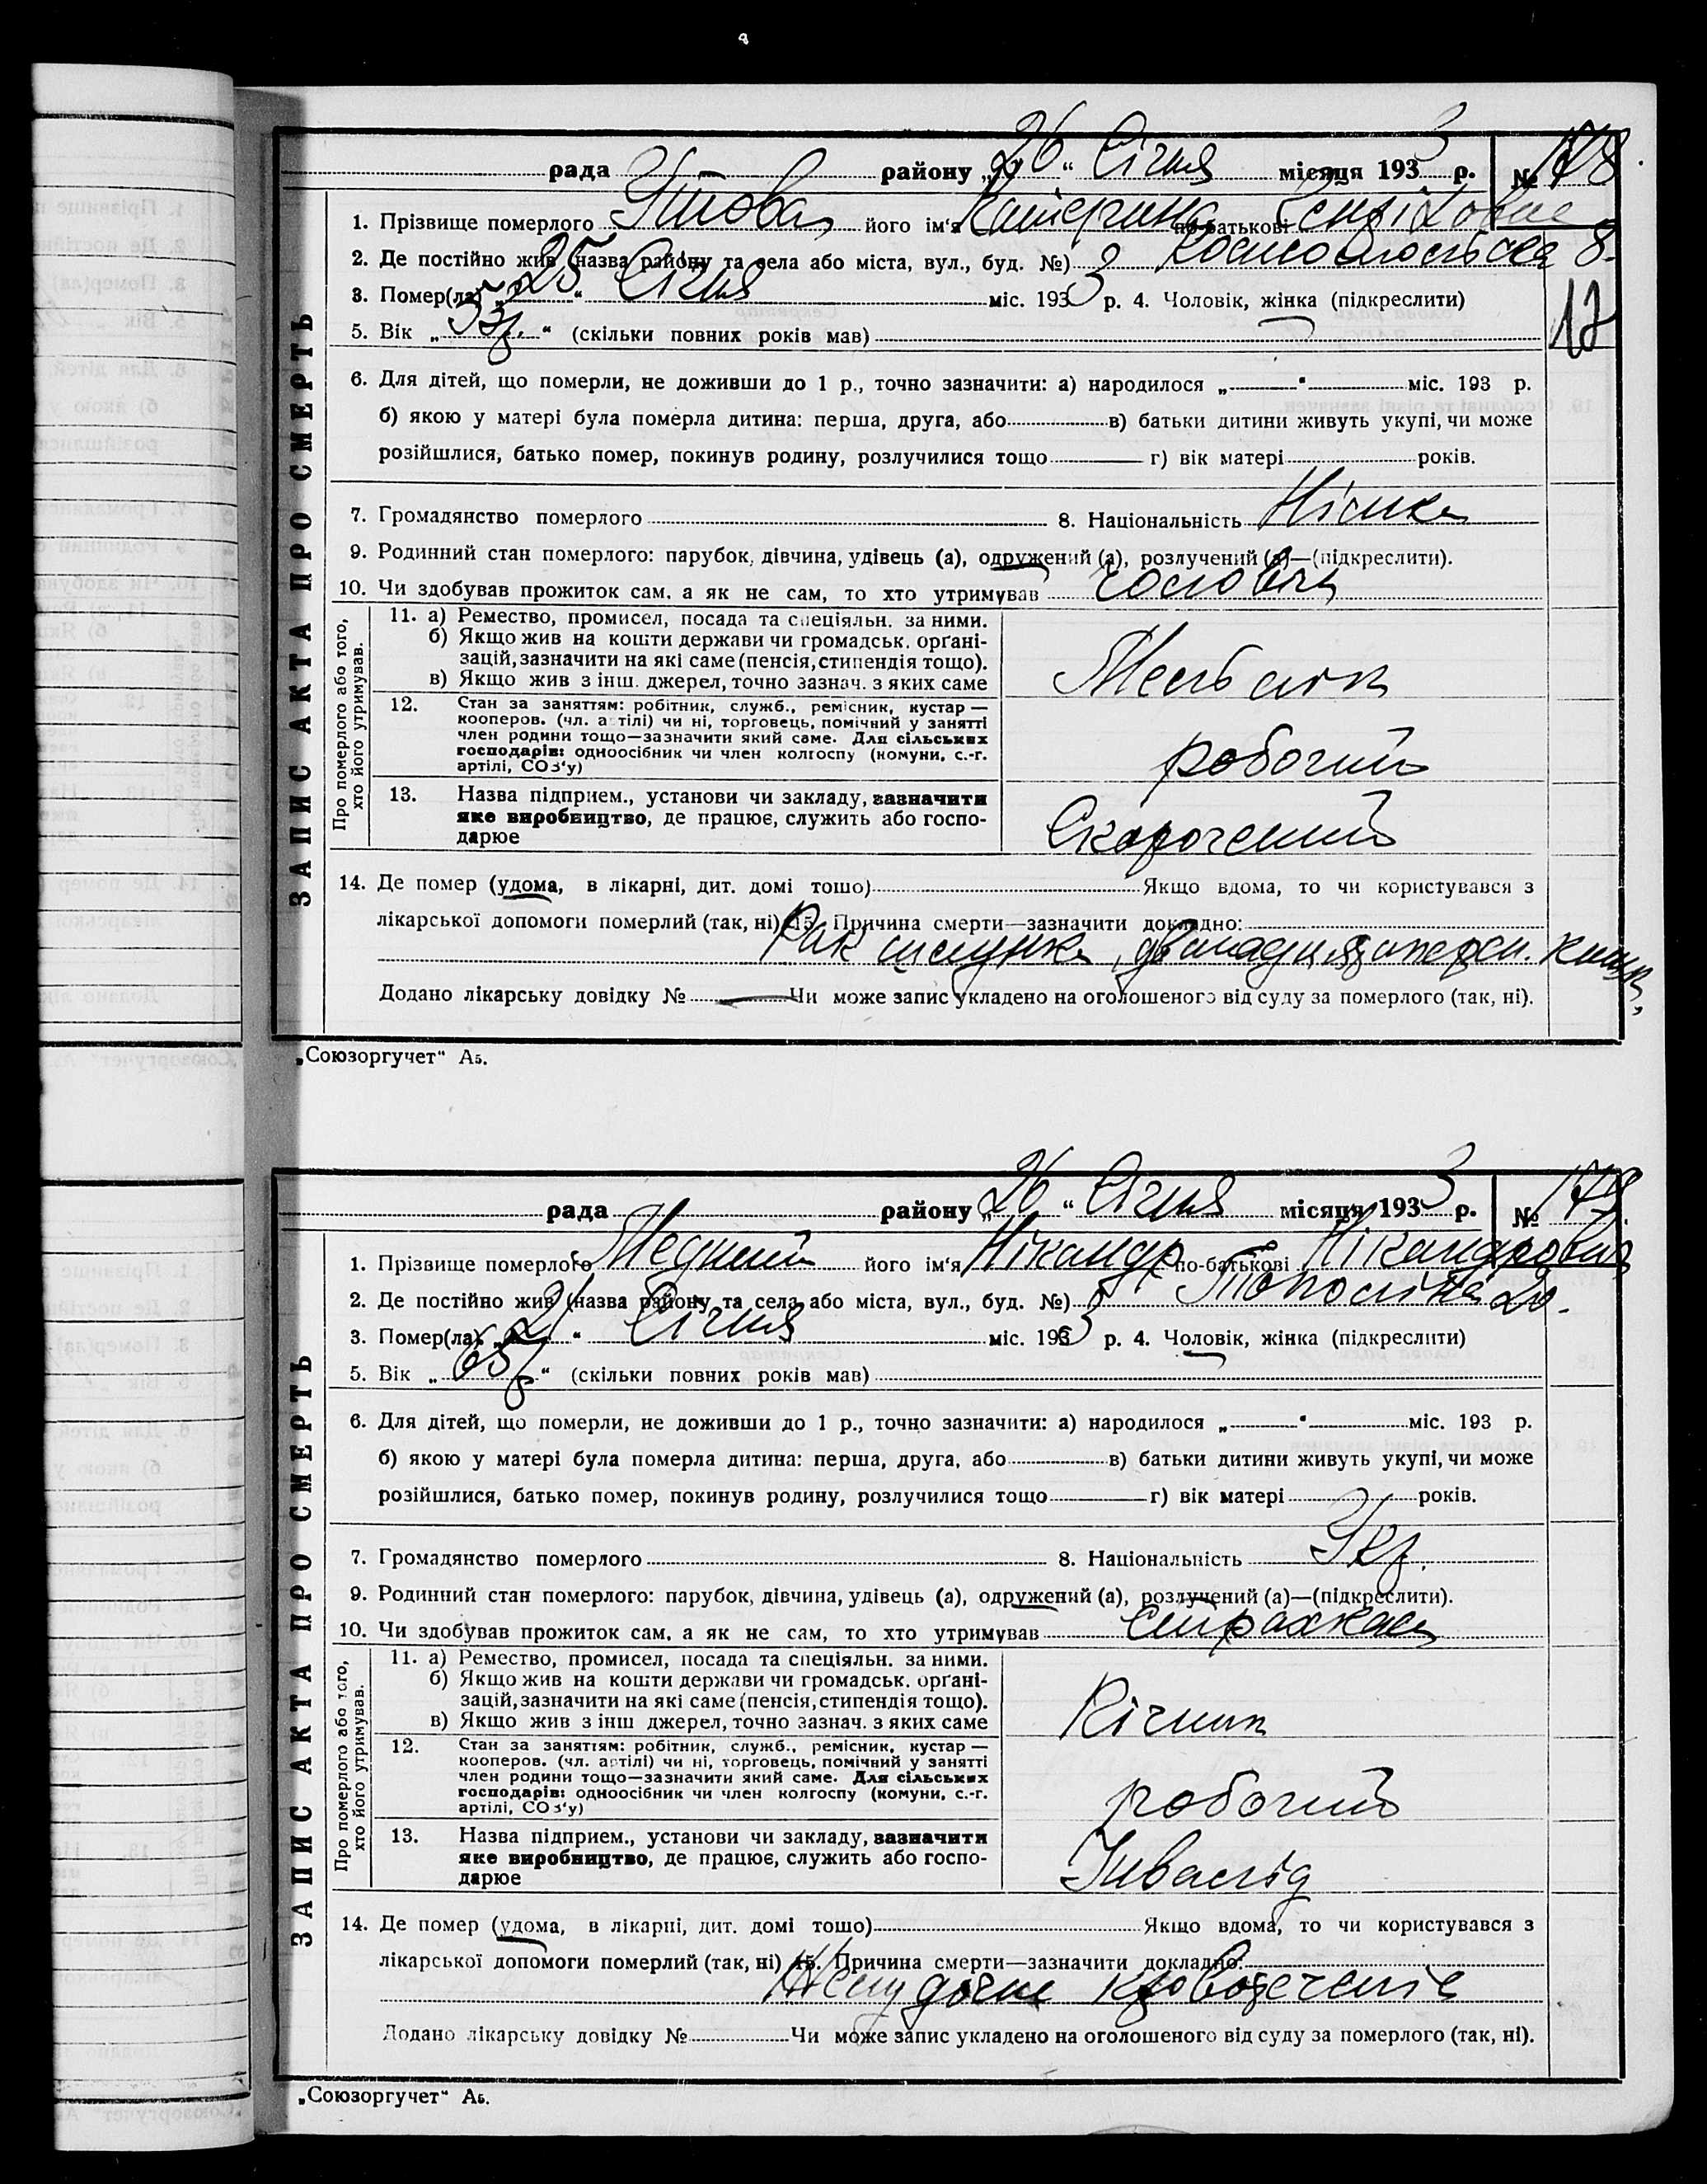 рада району „26“ Січня місяця 1933 р. № 178.
1. Прізвище померлого його ім‘я Катерина по-батькові
2. Де постійно жив (назва району та села або міста, вул., буд. №) 8.
3. Помер(ла) „25“ Січня міс. 1933 р. 4. Чоловік, жінка (підкреслити)
12
5. Вік „ “ (скільки повних років мав)
6. Для дітей, що померли, не доживши до 1 р., точно зазначити: а) народилося „—“ міс. 193 р.
б) якою у матері була померла дитина: перша, друга, або в) батьки дитини живуть укупі, чи може
розійшлися, батько помер, покинув родину, розлучилися тощо г) вік матері років.
7. Громадянство померлого 8. Національність Німка
9. Родинний стан померлого: парубок, дівчина, удівець (а), одружений (а), розлучений (а)—(підкреслити).
10. Чи здобував прожиток сам, а як не сам, то хто утримував чоловік
ЗАПИС АКТА ПРО СМЕРТЬ
Про померлого або того, хто його утримував.
11. а) Ремество, промисел, посада та спеціяльн. за ними.
б) Якщо жив на кошти держави чи громадськ. орґані-
зацій, зазначити на які саме (пенсія, стипендія тощо).
в) Якщо жив з інш. джерел, точно зазнач. з яких саме
12. Стан за заняттям: робітник, служб., ремісник, кустар —
кооперов. (чл. артілі) чи ні, торговець, помічний у занятті
член родини тощо—зазначити який саме. Для сільських
господарів: одноосібник чи член колгоспу (комуни, с.-г.
артілі, СОЗ‘у)
робочий
13. Назва підприєм., установи чи закладу, зазначити
яке виробництво, де працює, служить або госпо-
дарює
Скорочений
14. Де помер (удома, в лікарні, дит. домі тощо) Якщо вдома, то чи користувався з
лікарської допомоги померлий (так, ні) 15. Причина смерти—зазначити докладно:
Рак шлунка,
Додано лікарську довідку № — Чи може запис укладено на оголошеного від суду за померлого (так, ні).
„Союзоргучет“ А5.
рада району „26“ Січня місяця 1933 р. № 179.
1. Прізвище померлого його ім‘я Нікандр по-батькові Нікандрович
2. Де постійно жив (назва району та села або міста, вул., буд. №) 20.
3. Помер(ла) „21“ Січня міс. 1933 р. 4. Чоловік, жінка (підкреслити)
5. Вік „65р“ (скільки повних років мав)
6. Для дітей, що померли, не доживши до 1 р., точно зазначити: а) народилося „—“ міс. 193 р.
б) якою у матері була померла дитина: перша, друга, або в) батьки дитини живуть укупі, чи може
розійшлися, батько помер, покинув родину, розлучилися тощо г) вік матері років.
7. Громадянство померлого 8. Національність Укр.
9. Родинний стан померлого: парубок, дівчина, удівець (а), одружений (а), розлучений (а)—(підкреслити).
10. Чи здобував прожиток сам, а як не сам, то хто утримував страхкаса
ЗАПИС АКТА ПРО СМЕРТЬ
Про померлого або того, хто його утримував.
11. а) Ремество, промисел, посада та спеціяльн. за ними.
б) Якщо жив на кошти держави чи громадськ. орґані-
зацій, зазначити на які саме (пенсія, стипендія тощо).
в) Якщо жив з інш джерел, точно зазнач. з яких саме
Пічник
12. Стан за заняттям: робітник, служб., ремісник, кустар —
кооперов. (чл. артілі) чи ні, торговець, помічний у занятті
член родини тощо—зазначити який саме. Для сільських
господарів: одноосібник чи член колгоспу (комуни, с.-г.
артілі, СОЗ‘у)
робочий
13. Назва підприєм., установи чи закладу, зазначити
яке виробництво, де працює, служить або госпо-
дарює
Інвалід
14. Де помер (удома, в лікарні, дит. домі тошо) Якщо вдома, то чи користувався з
лікарської допомоги померлий (так, ні) 15. Причина смерти—зазначити докладно:
Додано лікарську довідку № Чи може запис укладено на оголошеного від суду за померлого (так, ні).
„Союзоргучет“ А5.